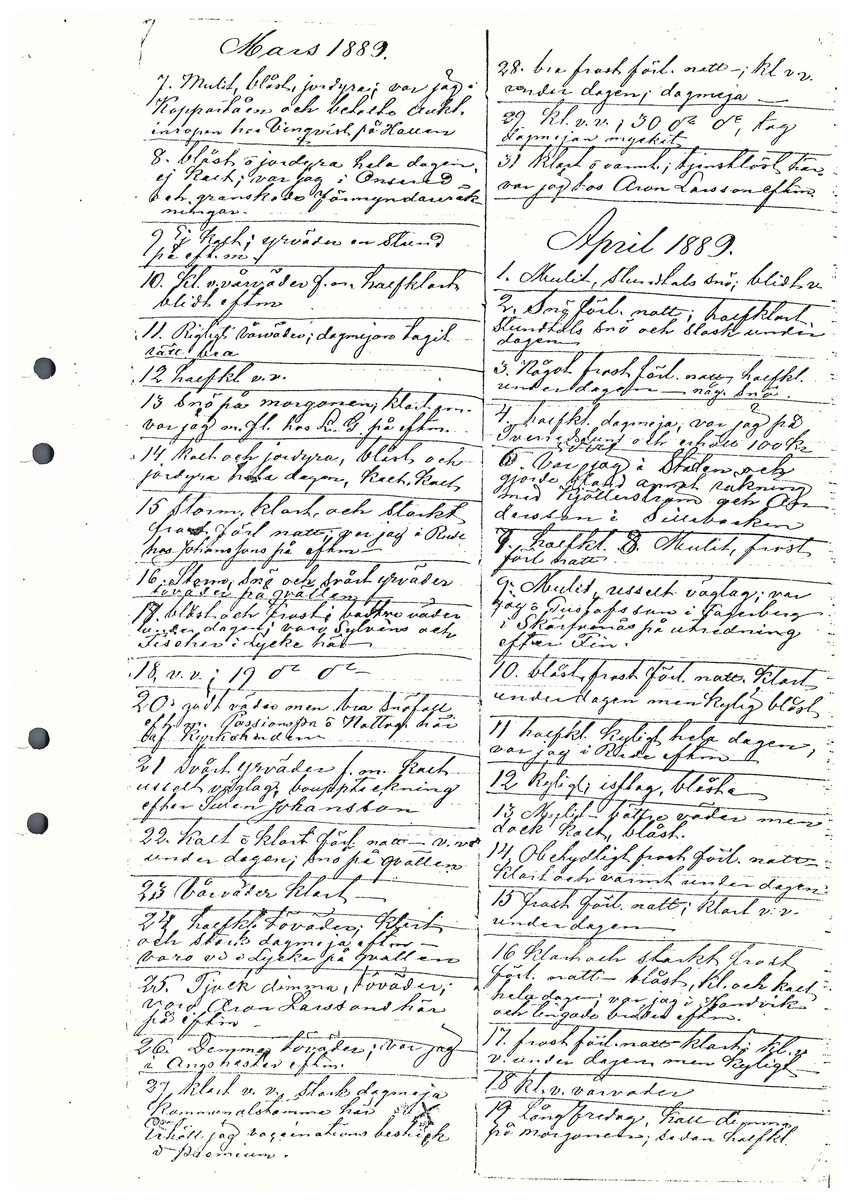 Mars 1889.
7. Mulit, blåst, jordyra; var jag i
Kopparåsen och betalte Aukt.
inropen hos Vinqvist på Hallen
8. blåst o jordyra hela dagen,
ej kalt; var jag i Onsered
och granskade Förmyndareräk
ningar.
9 Ej kalt; yrväder en stund
på eft.m.
10. kl. v. vårväder f.m. halfklart
blidt eftm
11. Rigtigt vårväder; dagmejan tagit
rätt bra
12 halfkl v.v.
13 Snö på morgonen; klart em.
var jag m.fl. hos L. G på eftm.
14 Kalt och jordyra, blåst och
jordyra hela dagen, kalt, kalt
15 Storm, klart, och starkt
frost förl natt; var jag i Rude
hos Johanssons på eftm
16. Storm, snö och svårt yrväder
töväder på qvällen
17. blåst och frost; bättre väder
under dagen; varo Sylvéns och
Fischer i Lycke här
18. v.v.; 19 do do
20. godt väder men bra snöfall
eft.m. Passionspr o Nattvg. här
af Kyrkoherden
21 svårt yrväder f.m. kalt
uselt väglag, boupptekning
efter Johansson
22. Kalt o klart förl. natt – v.v.
under dagen; snö på qvällen
23 Vårväder klart
24 halfkl. töväder; klart
och stark dagmeja eftm –
varo vi i Lycke på qvällen
25. Tjock dimma, töväder;
varo Aron Larssons här
på eftm
26. Dimma, töväder; var jag
i eftm.
27 klart v.v. stark dagmeja
Kommunalstämma här
Erhöll jag vaccinations besked
o premium.
28. bra frost förl. natt –; kl v.v.
under dagen; dagmeja
29 kl. v.v.; 30 do do, tog
dagmejan mycket
31 klart o varmt; här
var jag hos Aron Larsson eftm.
April 1889.
1. Mulit, stundtals snö; blidt v
2. Snö förl. natt; halfklart
stundtals snö och slask under
dagen
3. Något frost förl. natt, halfkl.
under dagen – någ. snö.
4. halfkl. dagmeja, var jag på
och erhöll 100 kr
6. Var jag i Stalen och
gjorde räkning
med Kjöllerström och An
dersson i Sillebacken
7. halfkl. 8. Mulit, frost
förl natt
9. Mulit, uselt väglag; var
jag o Gustafsson i Fagerberg
i Skärfvenäs på utredning
efter Fin.
10. blåst, frost förl. natt, klart
under dagen men kylig blåst
11 halfkl kyligt hela dagen,
var jag i Rude eftm
12 kyligt; islag, blåst
13 Mulit – bättre väder men
dock kalt, blåst.
14. Obetydligt frost förl. natt
klart och varmt under dagen
15 frost förl. natt; klart v.v.
under dagen
16 klart och starkt frost
förl. natt – blåst, kl. och kalt
hela dagen; var jag i Sandvik
och eftm.
17. frost förl. natt klart; kl. v
v. under dagen men kyligt
18 kl. v. vårväder
19 Långfredag, kall dimma
på morgonen; sedan halfkl.